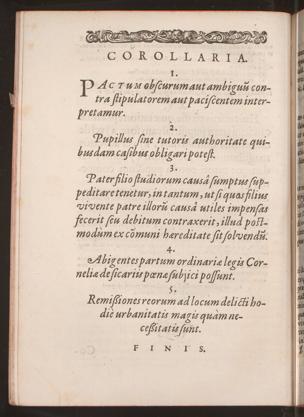 COROLLARIA.
1.
PACTUM obscurum aut ambiguũ con-
tra stipulatorem aut paciscentem inter-
pretamur.
2.
Pupillus sine tutoris authoritate qui-
busdam casibus obligari potest.
3.
Pater filio studiorum causâ sumptus sup-
peditare tenetur, in tantum, ut si quos filius
vivente patre illorũ causâ utiles impensas
fecerit seu debitum contraxerit, illud post-
modùm ex cõmuni hæreditate sit solvendũ.
4.
Abigentes partum ordinariæ legis Cor-
neliæ de sicariis pœnæ subijci possunt.
5.
Remissiones reorum ad locum delicti ho-
diè urbanitatis magis quàm ne-
cessitatis sunt.
FINIS.